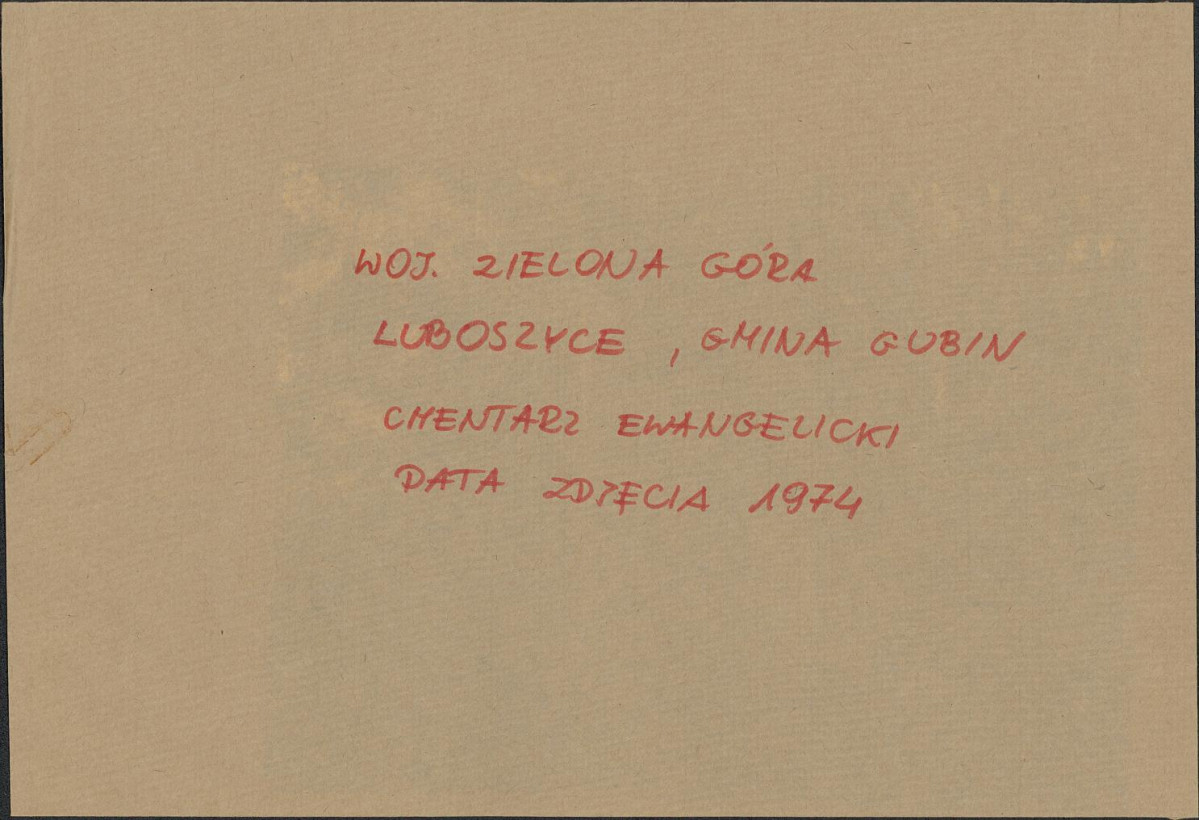 WOJ. ZIELONA GÓRA
LUBOSZYCE, GMINA GUBIN
CMENTARZ EWANGELICKI
DATA ZDJĘCIA 1974